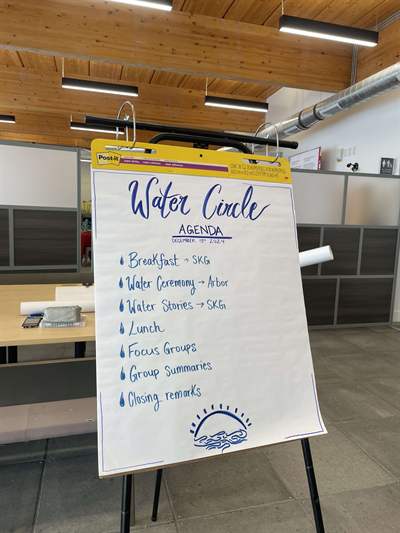 Post-it
Water Circle
AGENDA
Breakfast → SKG
Water Ceremony → Arbor
Water Stories → SKG
Lunch
Focus Groups
Group Summaries
Closing remarks